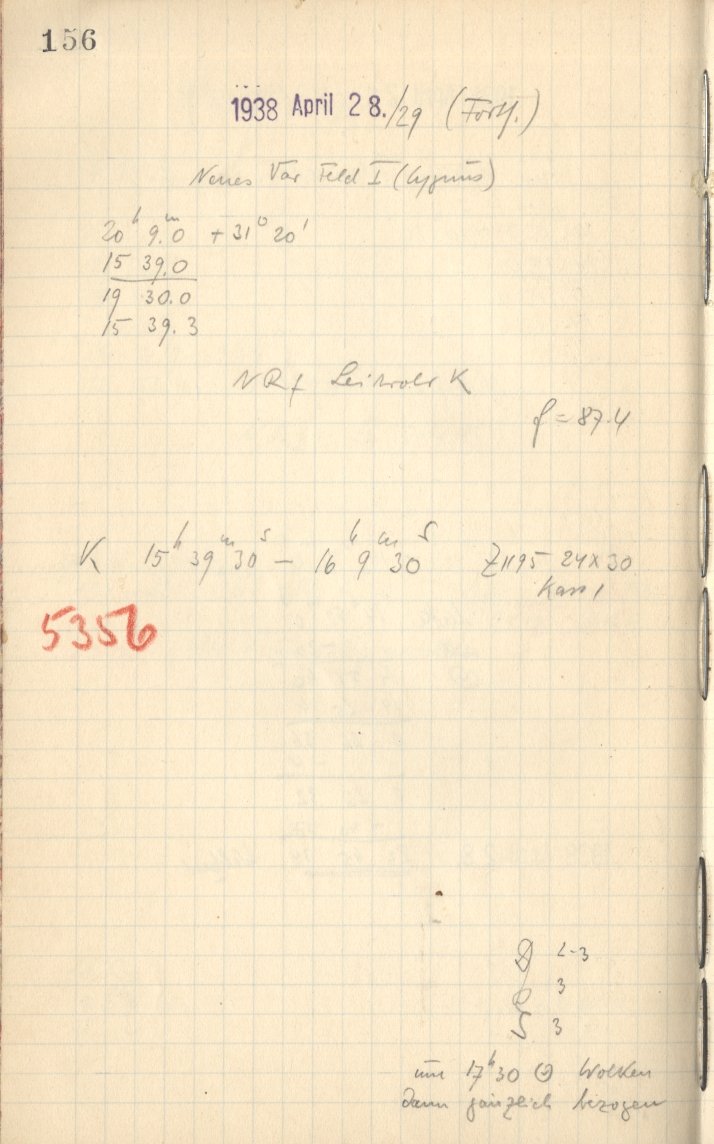 156
1938 April 28./29 (Forts.)
Neues Var Feld I (Cygnus)
20ʰ 9.ᵐ0 + 31° 20'
15 39.0
19 30.0
15 39.3
Leitrohr K
f = 87.4
K 15ʰ 39ᵐ 30ˢ — 16ʰ 9ᵐ 30ˢ Z1195 24x30
Kass 1
5356
D 2-3
3
S 3
um 17ʰ30 Wolken
dann gänzlich bezogen